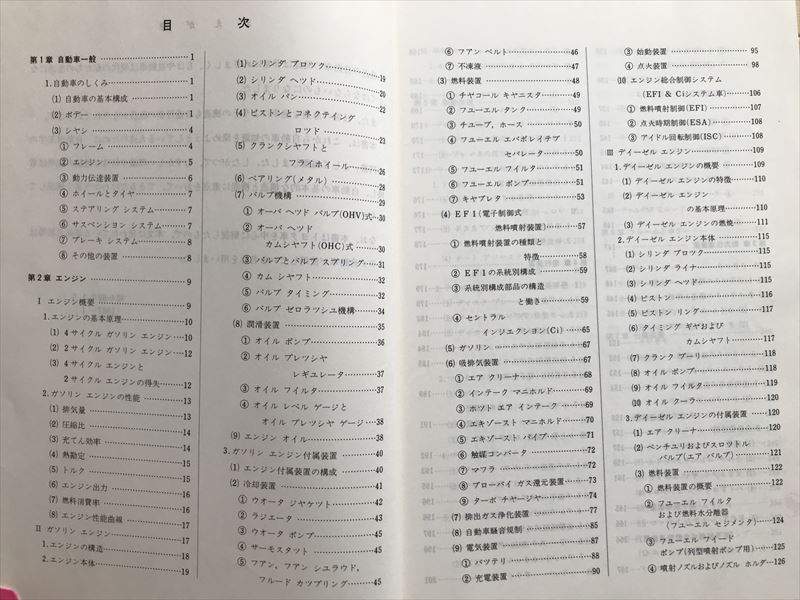 目　次
第1章 自動車一般 ……1
1.自動車のしくみ……1
(1) 自動車の基本構成 ……1
(2) ボデー ……1
(3) シヤシ ……4
① フレーム ……4
② エンジン ……5
③ 動力伝達装置 ……6
④ ホイールとタイヤ ……7
⑤ ステアリング システム……7
⑥ サスペンシヨン システム……7
⑦ ブレーキ システム ……8
⑧ その他の装置 ……8
第2章 エンジン ……9
Ⅰ エンジン概要 ……9
1.エンジンの基本原理……10
(1) 4サイクル ガソリン エンジン…10
(2) 2サイクル ガソリン エンジン…12
(3) 4サイクル エンジンと
2サイクル エンジンの得失……12
2.ガソリン エンジンの性能 ……13
(1) 排気量 ……13
(2) 圧縮比 ……14
(3) 充てん効率 ……14
(4) 熱勘定 ……15
(5) トルク ……15
(6) エンジン出力 ……16
(7) 燃料消費率 ……16
(8) エンジン性能曲線 ……17
Ⅱ ガソリン エンジン ……17
1.エンジンの構造 ……18
2.エンジン本体 ……19
(1) シリンダ ブロツク ……19
(2) シリンダ ヘツド ……20
(3) オイル パン ……22
(4) ピストンとコネクテイング
ロツド ……23
(5) クランクシヤフトと
フライホイール ……26
(6) ベアリング(メタル) ……28
(7) バルブ機構 ……29
① オーバ ヘツド バルブ(OHV)式…30
② オーバ ヘツド
カムシヤフト(OHC)式 ……30
③ バルブとバルブ スプリング……31
④ カム シヤフト ……32
⑤ バルブ タイミング ……32
⑥ バルブ ゼロラツシユ機構……34
(8) 潤滑装置 ……35
① オイル ポンプ ……36
② オイル プレツシヤ
レギユレータ ……37
③ オイル フイルタ ……37
④ オイル レベル ゲージと
オイル プレツシヤ ゲージ …38
(9) エンジン オイル ……38
3.ガソリン エンジン付属装置 ……40
(1) エンジン付属装置の構成 ……40
(2) 冷却装置 ……41
① ウオータ ジヤケツト ……42
② ラジエータ ……43
③ ウオータ ポンプ ……45
④ サーモスタツト ……45
⑤ フアン, フアン シユラウド,
フルード カツプリング ……45
⑥ フアン ベルト ……46
⑦ 不凍液 ……47
(3) 燃料装置 ……48
① チヤコール キヤニスタ ……49
② フユーエル タンク ……49
③ チユーブ, ホース ……50
④ フユーエル エバポレイテブ
セパレータ ……50
⑤ フユーエル フイルタ ……51
⑥ フユーエル ポンプ ……51
⑦ キヤブレタ ……53
(4) EFI(電子制御式
燃料噴射装置) ……57
① 燃料噴射装置の種類と
特徴 ……58
② EFIの系統別構成 ……59
③ 系統別構成部品の構造
と働き ……59
④ セントラル
インジエクシヨン(Ci) ……65
(5) ガソリン ……67
(6) 吸排気装置 ……67
① エア クリーナ ……68
② インテーク マニホルド ……69
③ ホツト エア インテーク ……69
④ エキゾースト マニホルド ……70
⑤ エキゾースト パイプ ……71
⑥ 触媒コンバータ ……72
⑦ マフラ ……72
⑧ ブローバイ ガス還元装置 ……73
⑨ ターボ チヤージヤ ……74
(7) 排出ガス浄化装置 ……77
(8) 自動車騒音規制 ……85
(9) 電気装置 ……87
① バツテリ ……88
② 充電装置 ……90
③ 始動装置 ……95
④ 点火装置 ……98
⑽ エンジン総合制御システム
(EFI & Ciシステム車) ……106
① 燃料噴射制御(EFI) ……107
② 点火時期制御(ESA) ……108
③ アイドル回転制御(ISC) ……108
Ⅲ デイーゼル エンジン ……109
1.デイーゼル エンジンの概要 ……109
(1) デイーゼル エンジンの特徴 ……110
(2) デイーゼル エンジン
の基本原理 ……110
(3) デイーゼル エンジンの燃焼 ……111
2.デイーゼル エンジン本体 ……115
(1) シリンダ ブロツク ……115
(2) シリンダ ライナ ……115
(3) シリンダ ヘツド ……115
(4) ピストン ……116
(5) ピストン リング ……117
(6) タイミング ギヤおよび
カムシヤフト ……117
(7) クランク プーリ ……118
(8) オイル ポンプ ……118
(9) オイル フイルタ ……119
⑽ オイル クーラ ……120
3.デイーゼル エンジンの付属装置 ……120
(1) エア クリーナ ……120
(2) ベンチユリおよびスロツトル
バルブ(エア バルブ) ……121
(3) 燃料装置 ……122
① 燃料装置の概要 ……122
② フユーエル フイルタ
および燃料水分離器
(フユーエル セジメンタ) ……124
③ フユーエル フイード
ポンプ(列型噴射ポンプ用) ……125
④ 噴射ノズルおよびノズル ホルダ…126